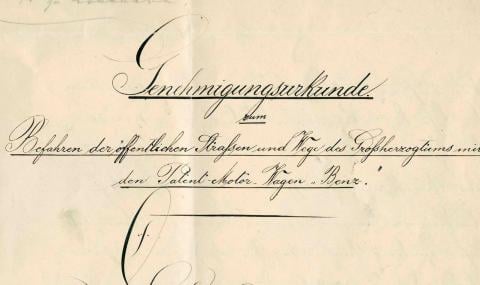 Genehmigungsurkunde.
zum
Befahren der öffentlichen Strassen und Wege des Großherzogtums mit
den Patent-Motor-Wagen „Benz."